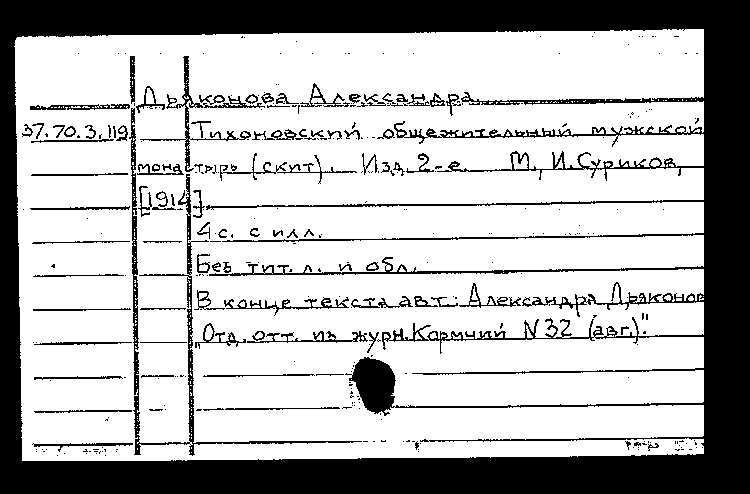 Дьяконова, Александра
37.70.3.119 Тихоновский общежительный мужской
монастырь (скит). Изд. 2-е. М., И. Суриков,
[1914].
4 с. с илл.
Без тит. л. и обл.
В конце текста авт.: Александра Дьяконов
"Отд. отт. из журн. Кормчий N 32 (авг.)".